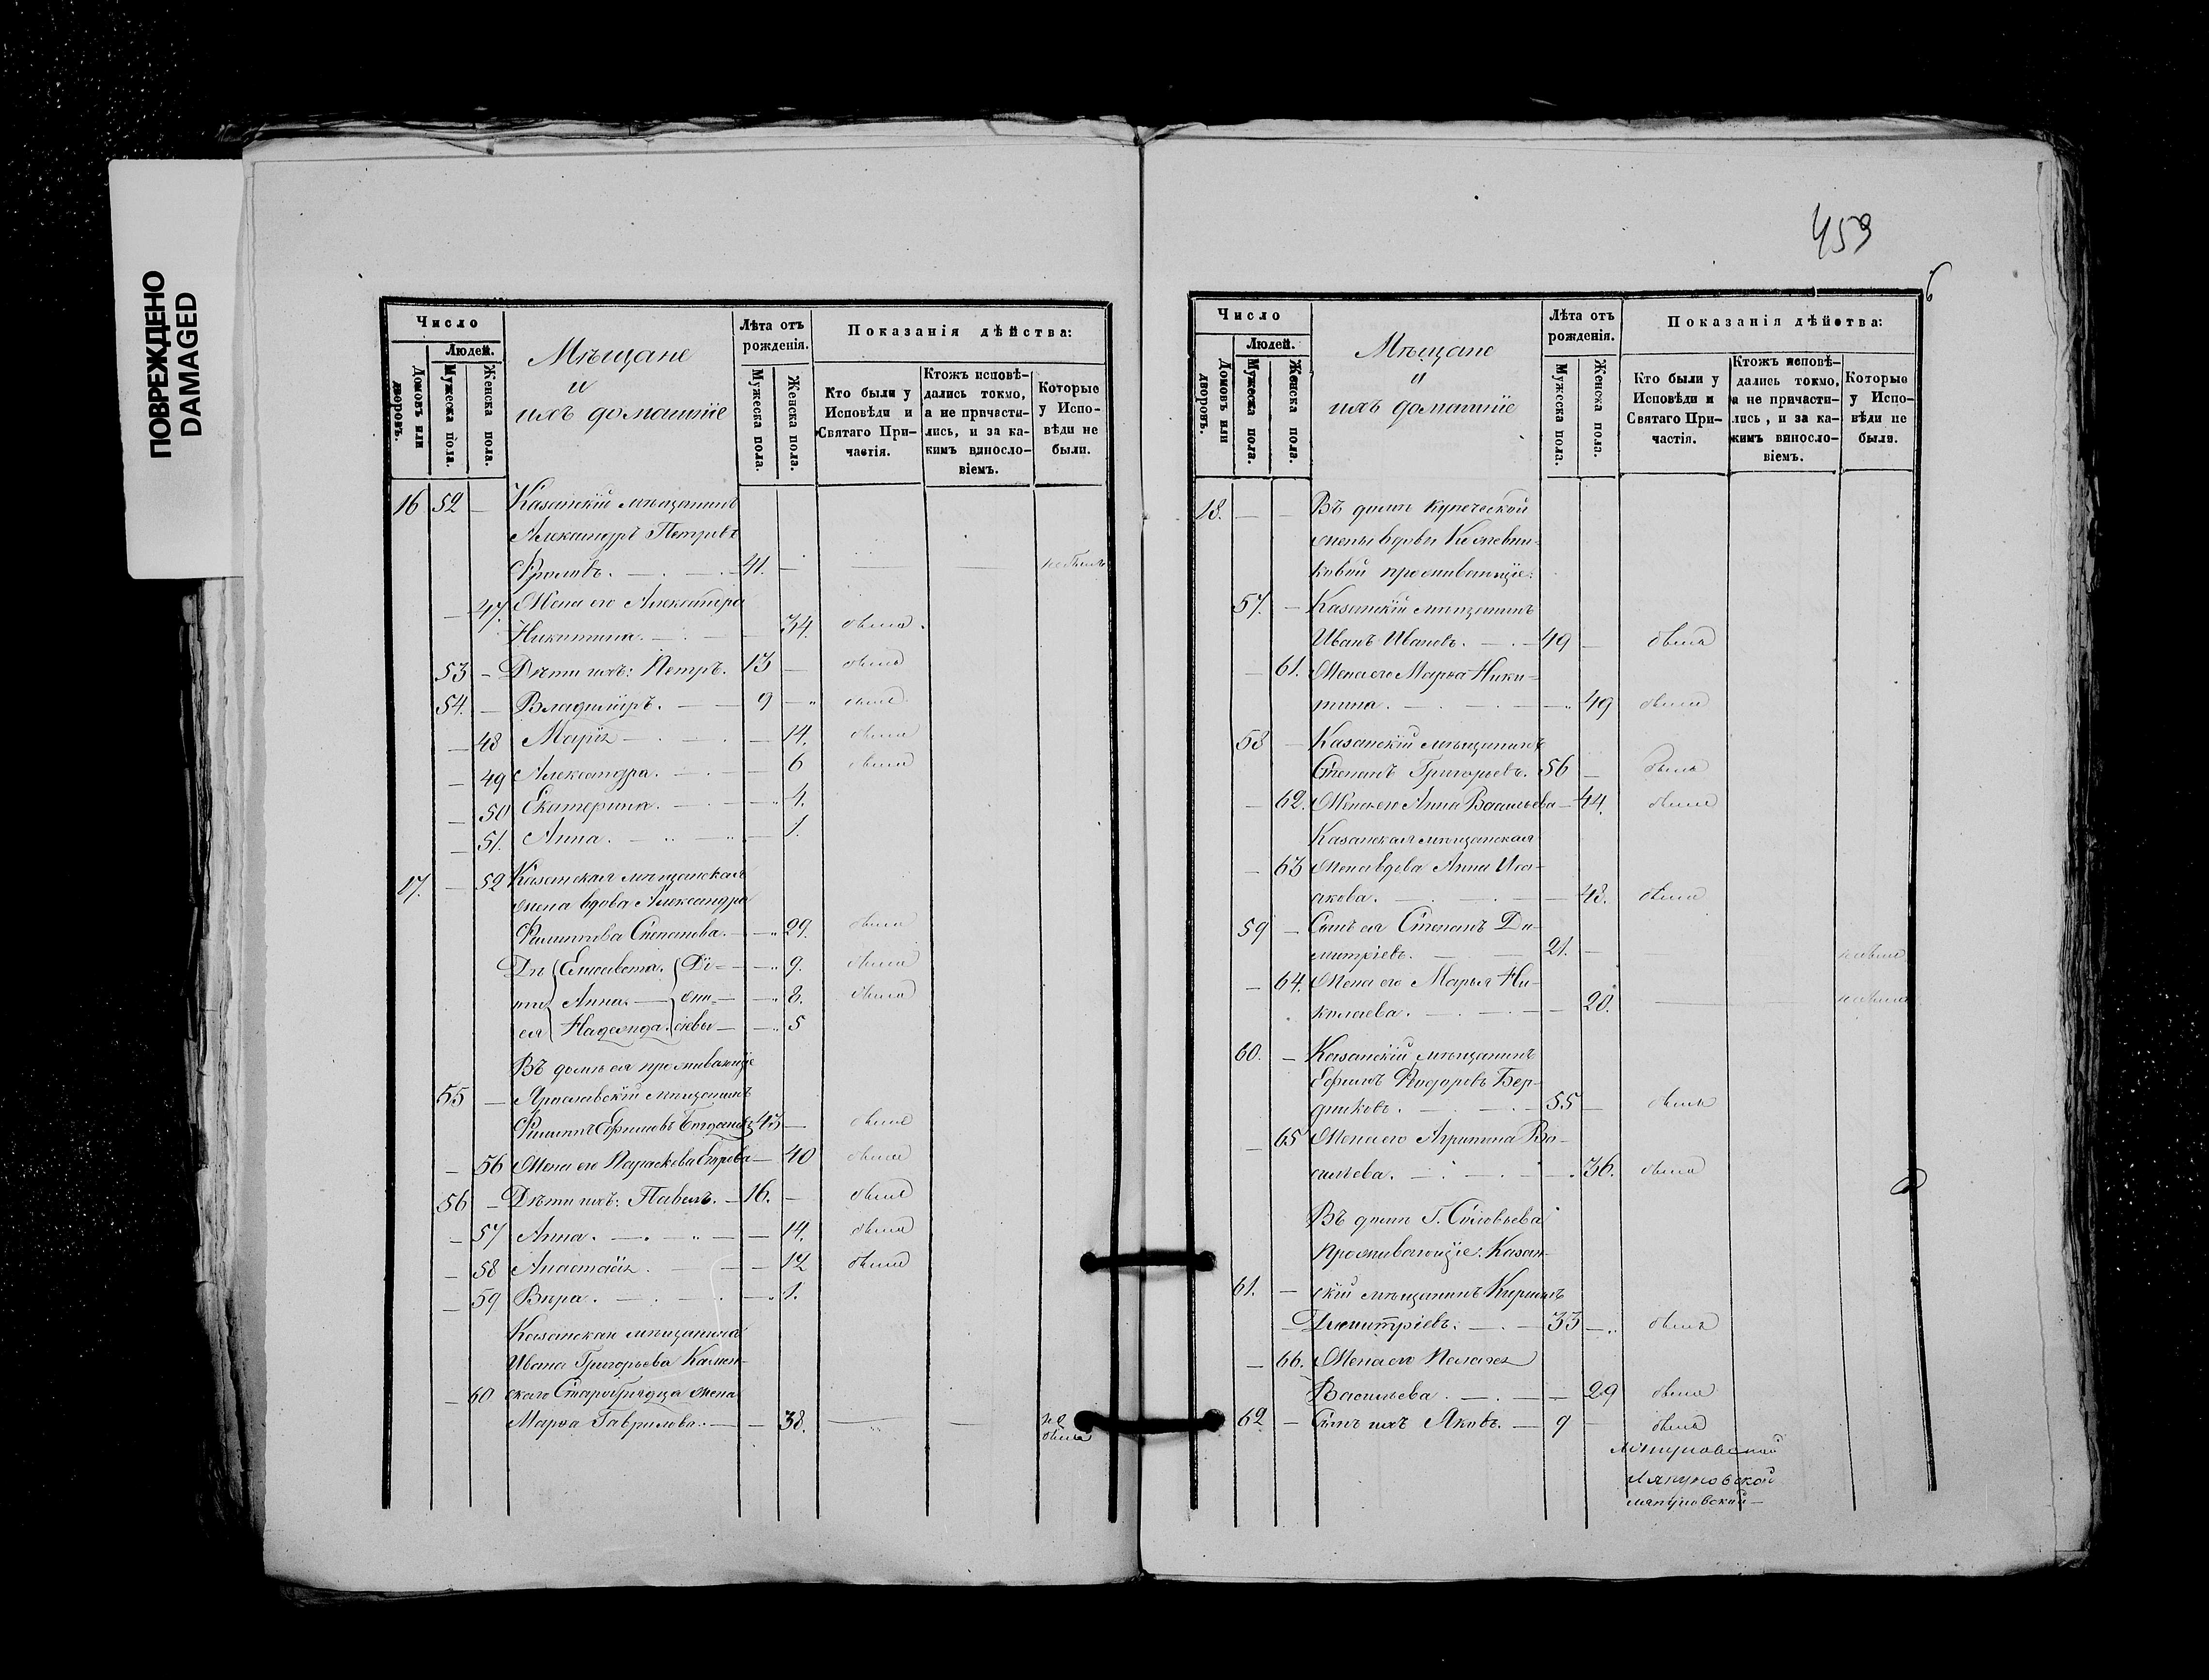 ПОВРЕЖДЕНО
DAMAGED
Число
Людей.
Домовъ или дворовъ.
Мужеска пола.
Женска пола.
Мѣщане
и
ихъ домашніе
Лѣта отъ рожденія.
Мужеска пола.
Женска пола.
Показанія дѣйства:
Кто были у Исповѣди и Святаго Причастія.
Ктожъ исповѣдались токмо, а не причастились, и за какимъ винословіемъ.
Которые у Исповѣди не были.
16 52 — Казанскій мѣщанинъ
Александръ Петровъ
Фроловъ. — 41. — не былъ
— 47. Жена его Александра
Никитина. — 34. была.
53 — Дѣти ихъ: Петръ. 13 — былъ
54. — Владиміръ. — 9 — былъ
— 48 Марія — 14. была
— 49 Александра. — 6 была
— 50 Екатерина. — 4.
— 51. Анна. — 1.
17. — 52 Казанская мѣщанская
жена вдова Александра
Филиппова Степанова. — 29. была
Дѣ Елисавета. 9. была
ти Анна. — 8. была
ея Надежда. 5
Въ домѣ ея проживающіе
55 — Ярославскій мѣщанинъ
Филиппъ Ефимовъ 43 — былъ
— 56 Жена его Параскева 40 была
56 — Дѣти ихъ: Павелъ. — 16. — былъ
— 57 Анна. — 14. была
— 58 Анастасія. — 12 была
— 59 Вѣра. — 1.
Казанскаго мѣщанина
Ивана Григорьева Камен-
— 60 скаго Старообрядца жена
Марѳа Гаврилова. — 38. — не
была
459
6
Число
Людей.
Домовъ или дворовъ.
Мужеска пола.
Женска пола.
Мѣщане
и
ихъ домашніе
Лѣта отъ рожденія.
Мужеска пола.
Женска пола.
Показанія дѣйства:
Кто были у Исповѣди и Святаго Причастія.
Ктожъ исповѣдались токмо, а не причастились, и за какимъ винословіемъ.
Которые у Исповѣди не были.
18. — — Въ домѣ купеческой
жены вдовы Кожевни-
ковой проживающіе:
57. — Казанскій мѣщанинъ
Иванъ Ивановъ. — 49 — былъ
— 61. Жена его Марѳа Ники-
тина. — 49 была
58 — Казанскій мѣщанинъ
Степанъ Григорьевъ. 56 — былъ
— 62. Жена его Анна Васильева — 44. была
Казанская мѣщанская
— 63 жена вдова Анна Иса-
акова. — 48. была
59 — Сынъ ея Степанъ Ди-
митріевъ. — 21. — не былъ
— 64. Жена его Марья Ни-
колаева. — 20. — не была
60. — Казанскій мѣщанинъ
Ефимъ Ѳедоровъ Бер-
дниковъ. — 55 — былъ
— 65 Жена его Агрипина Ва-
сильева. — 36. была
Въ домѣ Г. Соловьева
проживающіе: Казан-
61. — скій мѣщанинъ Кириллъ
Димитріевъ. — 33 — былъ
— 66. Жена его Пелагея
Васильева. — 29 была
62 — Сынъ ихъ Яковъ. — 9 — былъ